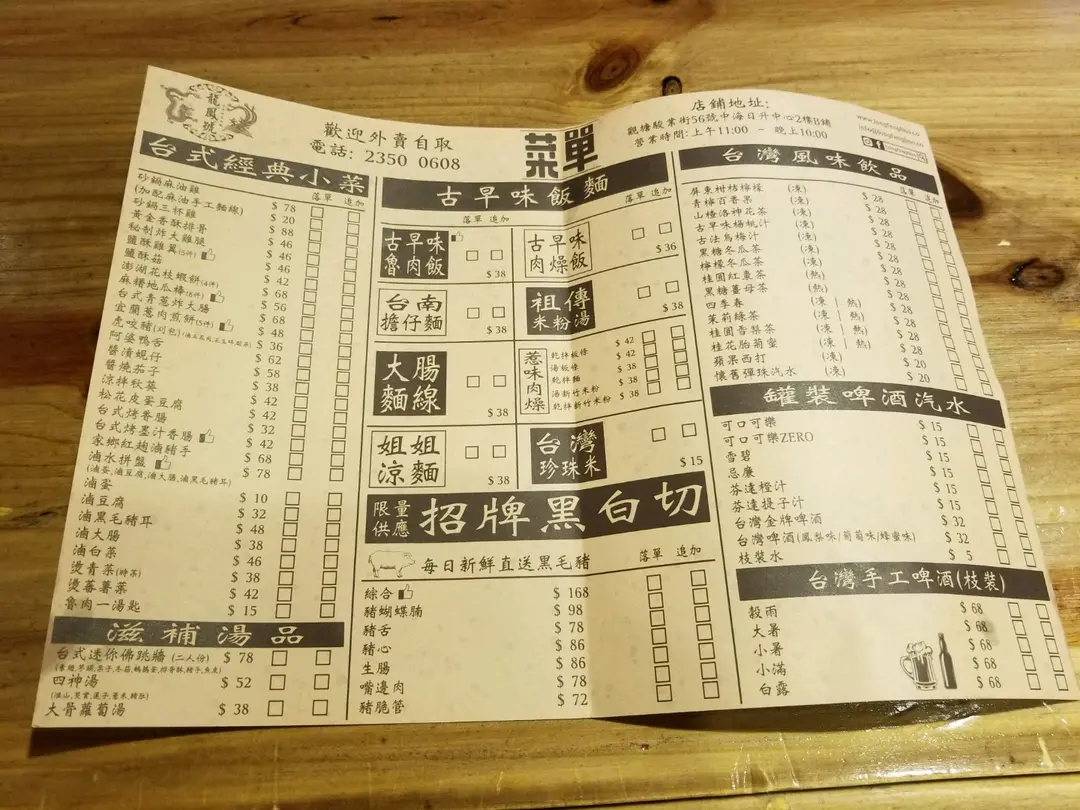 龍鳳號
歡迎外賣自取
電話: 2350 0608
菜單
店鋪地址:
觀塘駿業街56號中海日升中心2樓B鋪
營業時間: 上午11:00 - 晚上10:00
台式經典小菜
落單 追加
砂鍋麻油雞 $ 78
(加配麻油手工麵線) $ 20
砂鍋三杯雞 $ 88
黃金香酥排骨 $ 46
秘制炸大雞腿 $ 46
鹽酥雞翼(5件) $ 46
鹽酥菇 $ 42
澎湖花枝蝦餅(4件) $ 68
麻糬地瓜棒(6件) $ 56
台式青蔥炸大腸 $ 68
宜蘭蔥肉煎餅(5件) $ 48
虎咬豬(刈包) $ 36
阿婆鴨舌 $ 62
醬漬蜆仔 $ 58
醬燒茄子 $ 38
涼拌秋葵 $ 42
松花皮蛋豆腐 $ 42
台式烤香腸 $ 32
台式烤墨汁香腸 $ 42
家鄉紅麴滷豬手 $ 68
滷水拼盤 $ 78
(滷蛋,滷豆腐,滷大腸,滷黑毛豬耳)
滷蛋 $ 10
滷豆腐 $ 32
滷黑毛豬耳 $ 48
滷大腸 $ 38
滷白菜 $ 46
燙青菜(時菜) $ 38
燙蕃薯菜 $ 42
魯肉一湯匙 $ 15
滋補湯品
台式迷你佛跳牆 (二人份) $ 78
四神湯 $ 52
(淮山,茨實,蓮子,薏米,豬肚)
大骨蘿蔔湯 $ 38
古早味飯麵
落單 追加 落單 追加
古早味魯肉飯 $ 38
古早味肉燥飯 $ 36
台南擔仔麵 $ 38
祖傳米粉湯 $ 38
大腸麵線 $ 38
惹味肉燥
乾拌粄條 $ 42
湯粄條 $ 42
乾拌麵 $ 38
湯新竹米粉 $ 38
乾拌新竹米粉 $ 38
姐姐涼麵 $ 38
台灣珍珠米 $ 15
限量供應 招牌黑白切
每日新鮮直送黑毛豬 落單 追加
綜合 $ 168
豬蝴蝶腩 $ 98
豬舌 $ 78
豬心 $ 86
生腸 $ 86
嘴邊肉 $ 78
豬脆管 $ 72
台灣風味飲品
落單
屏東柑桔檸檬 (凍) $ 28
青檸百香果 (凍) $ 28
山楂洛神花茶 (凍) $ 28
古早味楊桃汁 (凍) $ 28
古法烏梅汁 (凍) $ 28
黑糖冬瓜茶 (凍) $ 28
檸檬冬瓜茶 (凍) $ 28
桂圓紅棗茶 (熱) $ 28
黑糖薑母茶 (熱) $ 28
四季春 (凍 | 熱) $ 28
茉莉綠茶 (凍 | 熱) $ 28
桂圓雪梨茶 (凍 | 熱) $ 28
桂花胎菊蜜 (凍 | 熱) $ 28
蘋果西打 (凍) $ 20
懷舊彈珠汽水 (凍) $ 20
罐裝啤酒汽水
可口可樂 $ 15
可口可樂ZERO $ 15
雪碧 $ 15
忌廉 $ 15
芬達橙汁 $ 15
芬達提子汁 $ 15
台灣金牌啤酒 $ 32
台灣啤酒(鳳梨味/葡萄味/蜂蜜味) $ 32
枝裝水 $ 5
台灣手工啤酒(枝裝)
穀雨 $ 68
大暑 $ 68
小暑 $ 68
小滿 $ 68
白露 $ 68